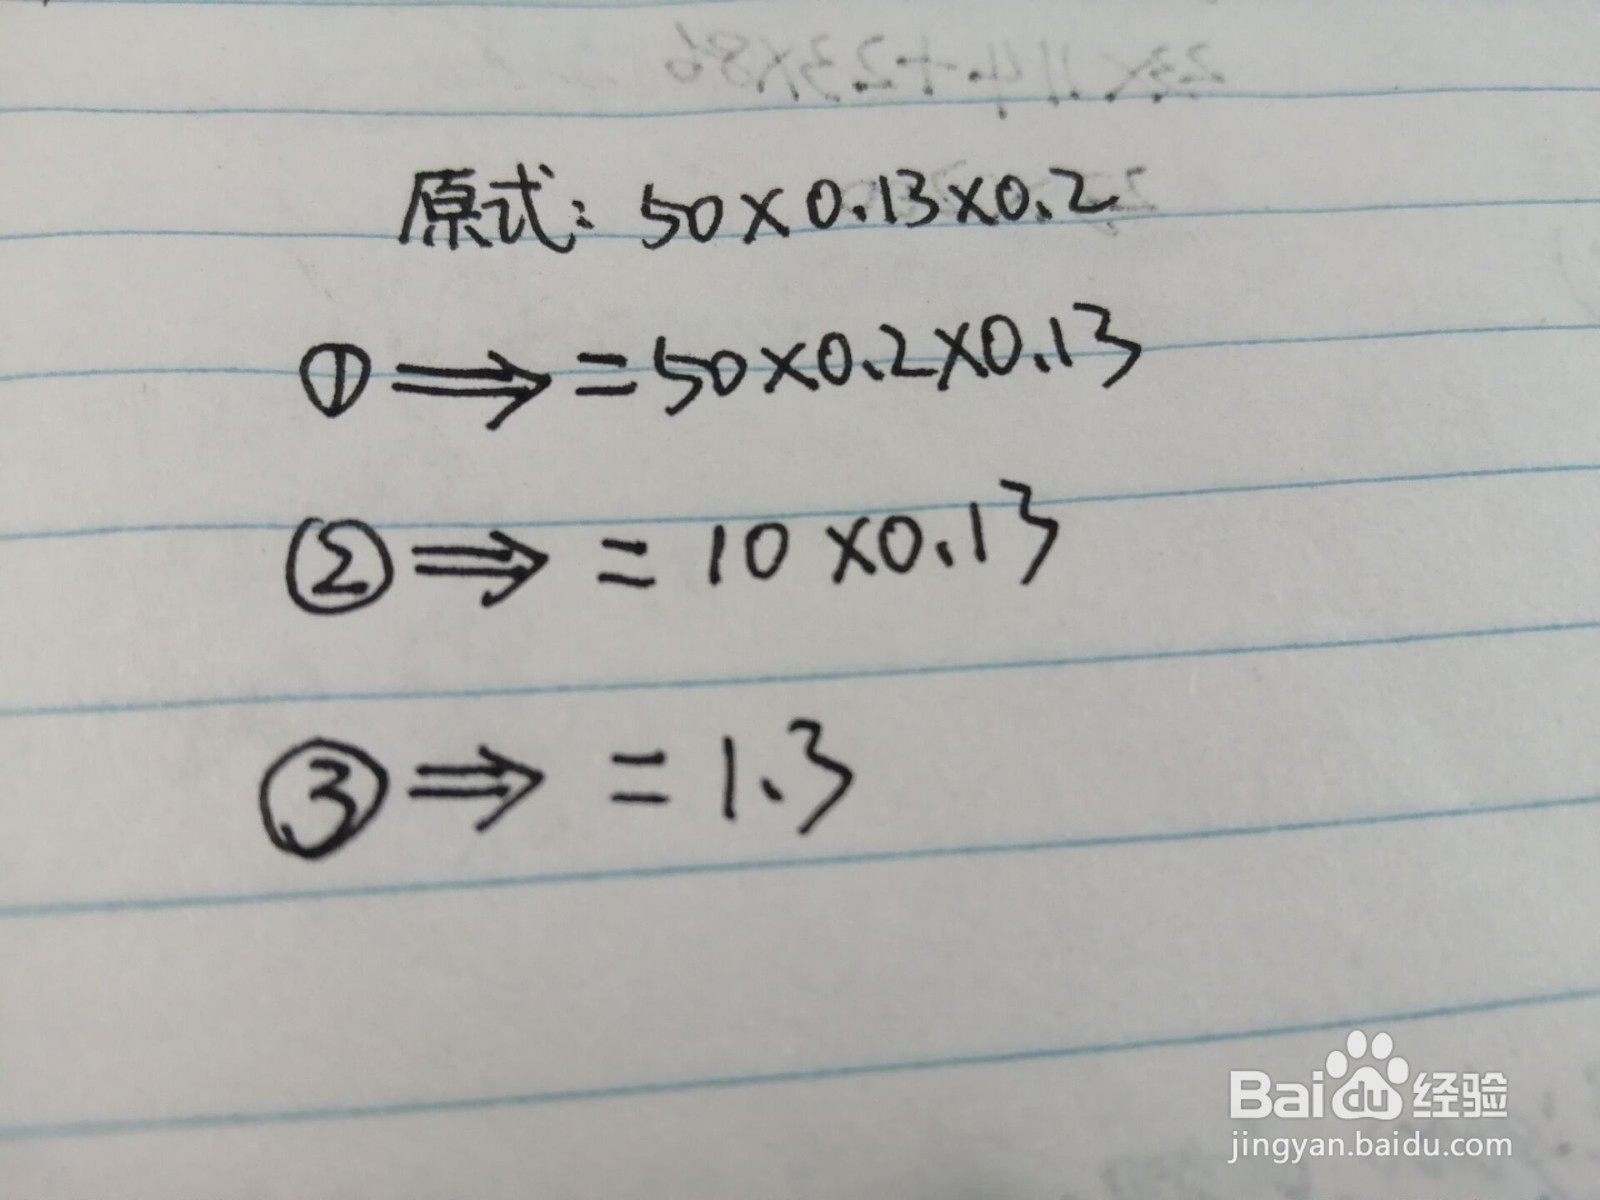 23×114+23×86
原式：50×0.13×0.2
①⇒=50×0.2×0.13
②⇒=10×0.13
③⇒=1.3
Baidu经验
jingyan.baidu.com